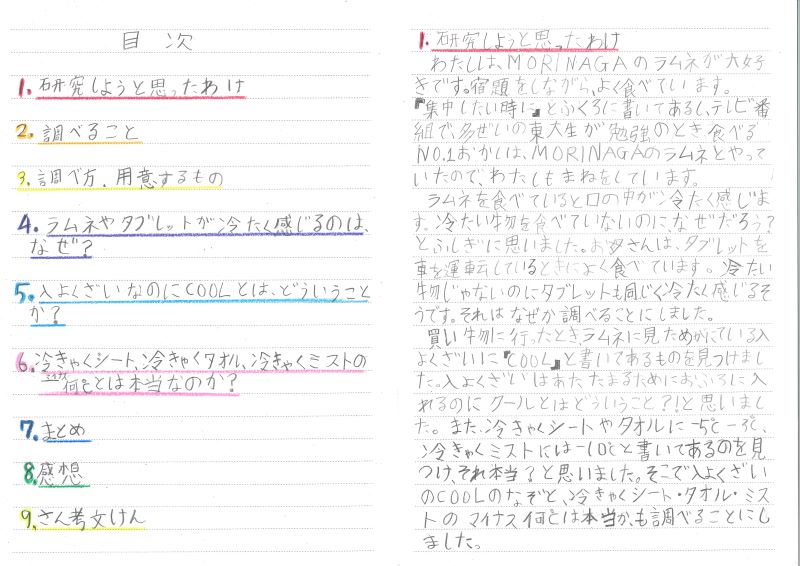 目次
1.研究しようと思ったわけ
2.調べること
3.調べ方.用意するもの
4.ラムネやタブレットが冷たく感じるのは、
なぜ?
5.入よくざいなのにCOOLとは、どういうこと
か?
6.冷きゃくシート、冷きゃくタオル、冷きゃくミストの
マイナス何℃とは本当なのか?
7.まとめ
8.感想
9.さん考文けん
1.研究しようと思ったわけ
わたしは、MORINAGAのラムネが大好
きです。宿題をしながら、よく食べています。
『集中したい時に』とふくろに書いてあるし、テレビ番
組で、多ぜいの東大生が勉強のとき食べる
NO.1おかしは、MORINAGAのラムネとやって
いたので、わたしもまねをしています。
ラムネを食べていると口の中が冷たく感じま
す。冷たい物を食べていないのに、なぜだろう?
とふしぎに思いました。お父さんは、タブレットを
車を運転しているときによく食べています。冷たい
物じゃないのにタブレットも同じく冷たく感じるそ
うです。それはなぜか調べることにしました。
買い物に行ったとき、ラムネに見ためがにている入
よくざいに『COOL』と書いてあるものを見つけまし
た。入よくざいはあたたまるためにおふろに入
れるのにクールとはどういうこと?!と思いまし
た。また、冷きゃくシートやタオルに-5℃-3℃、
冷きゃくミストには-10℃と書いてあるのを見
つけ、それ本当?と思いました。そこで入よくざい
のCOOLのなぞと、冷きゃくシート・タオル・ミス
トのマイナス何℃とは本当か、も調べることにし
ました。